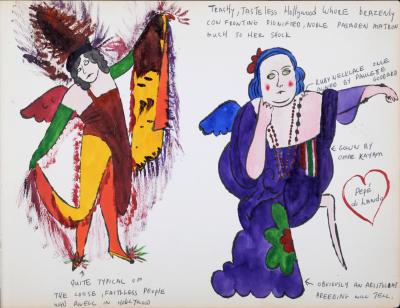 TRASHY, TASTELESS HOLLYWOOD WHORE BRAZENLY
CONFRONTING DIGNIFIED, NOBLE MATRON
MUCH TO HER SHOCK
RUBY NECKLACE ONCE
OWNED BY PAULETTE
GODDARD
GOWN BY
OMAR KAYAM
PEPÉ
di LANDA
QUITE TYPICAL OF
THE LOOSE, FAITHLESS PEOPLE
WHO DWELL IN HOLLYWOOD
OBVIOUSLY AN ARISTOCRAT
BREEDING WILL TELL.